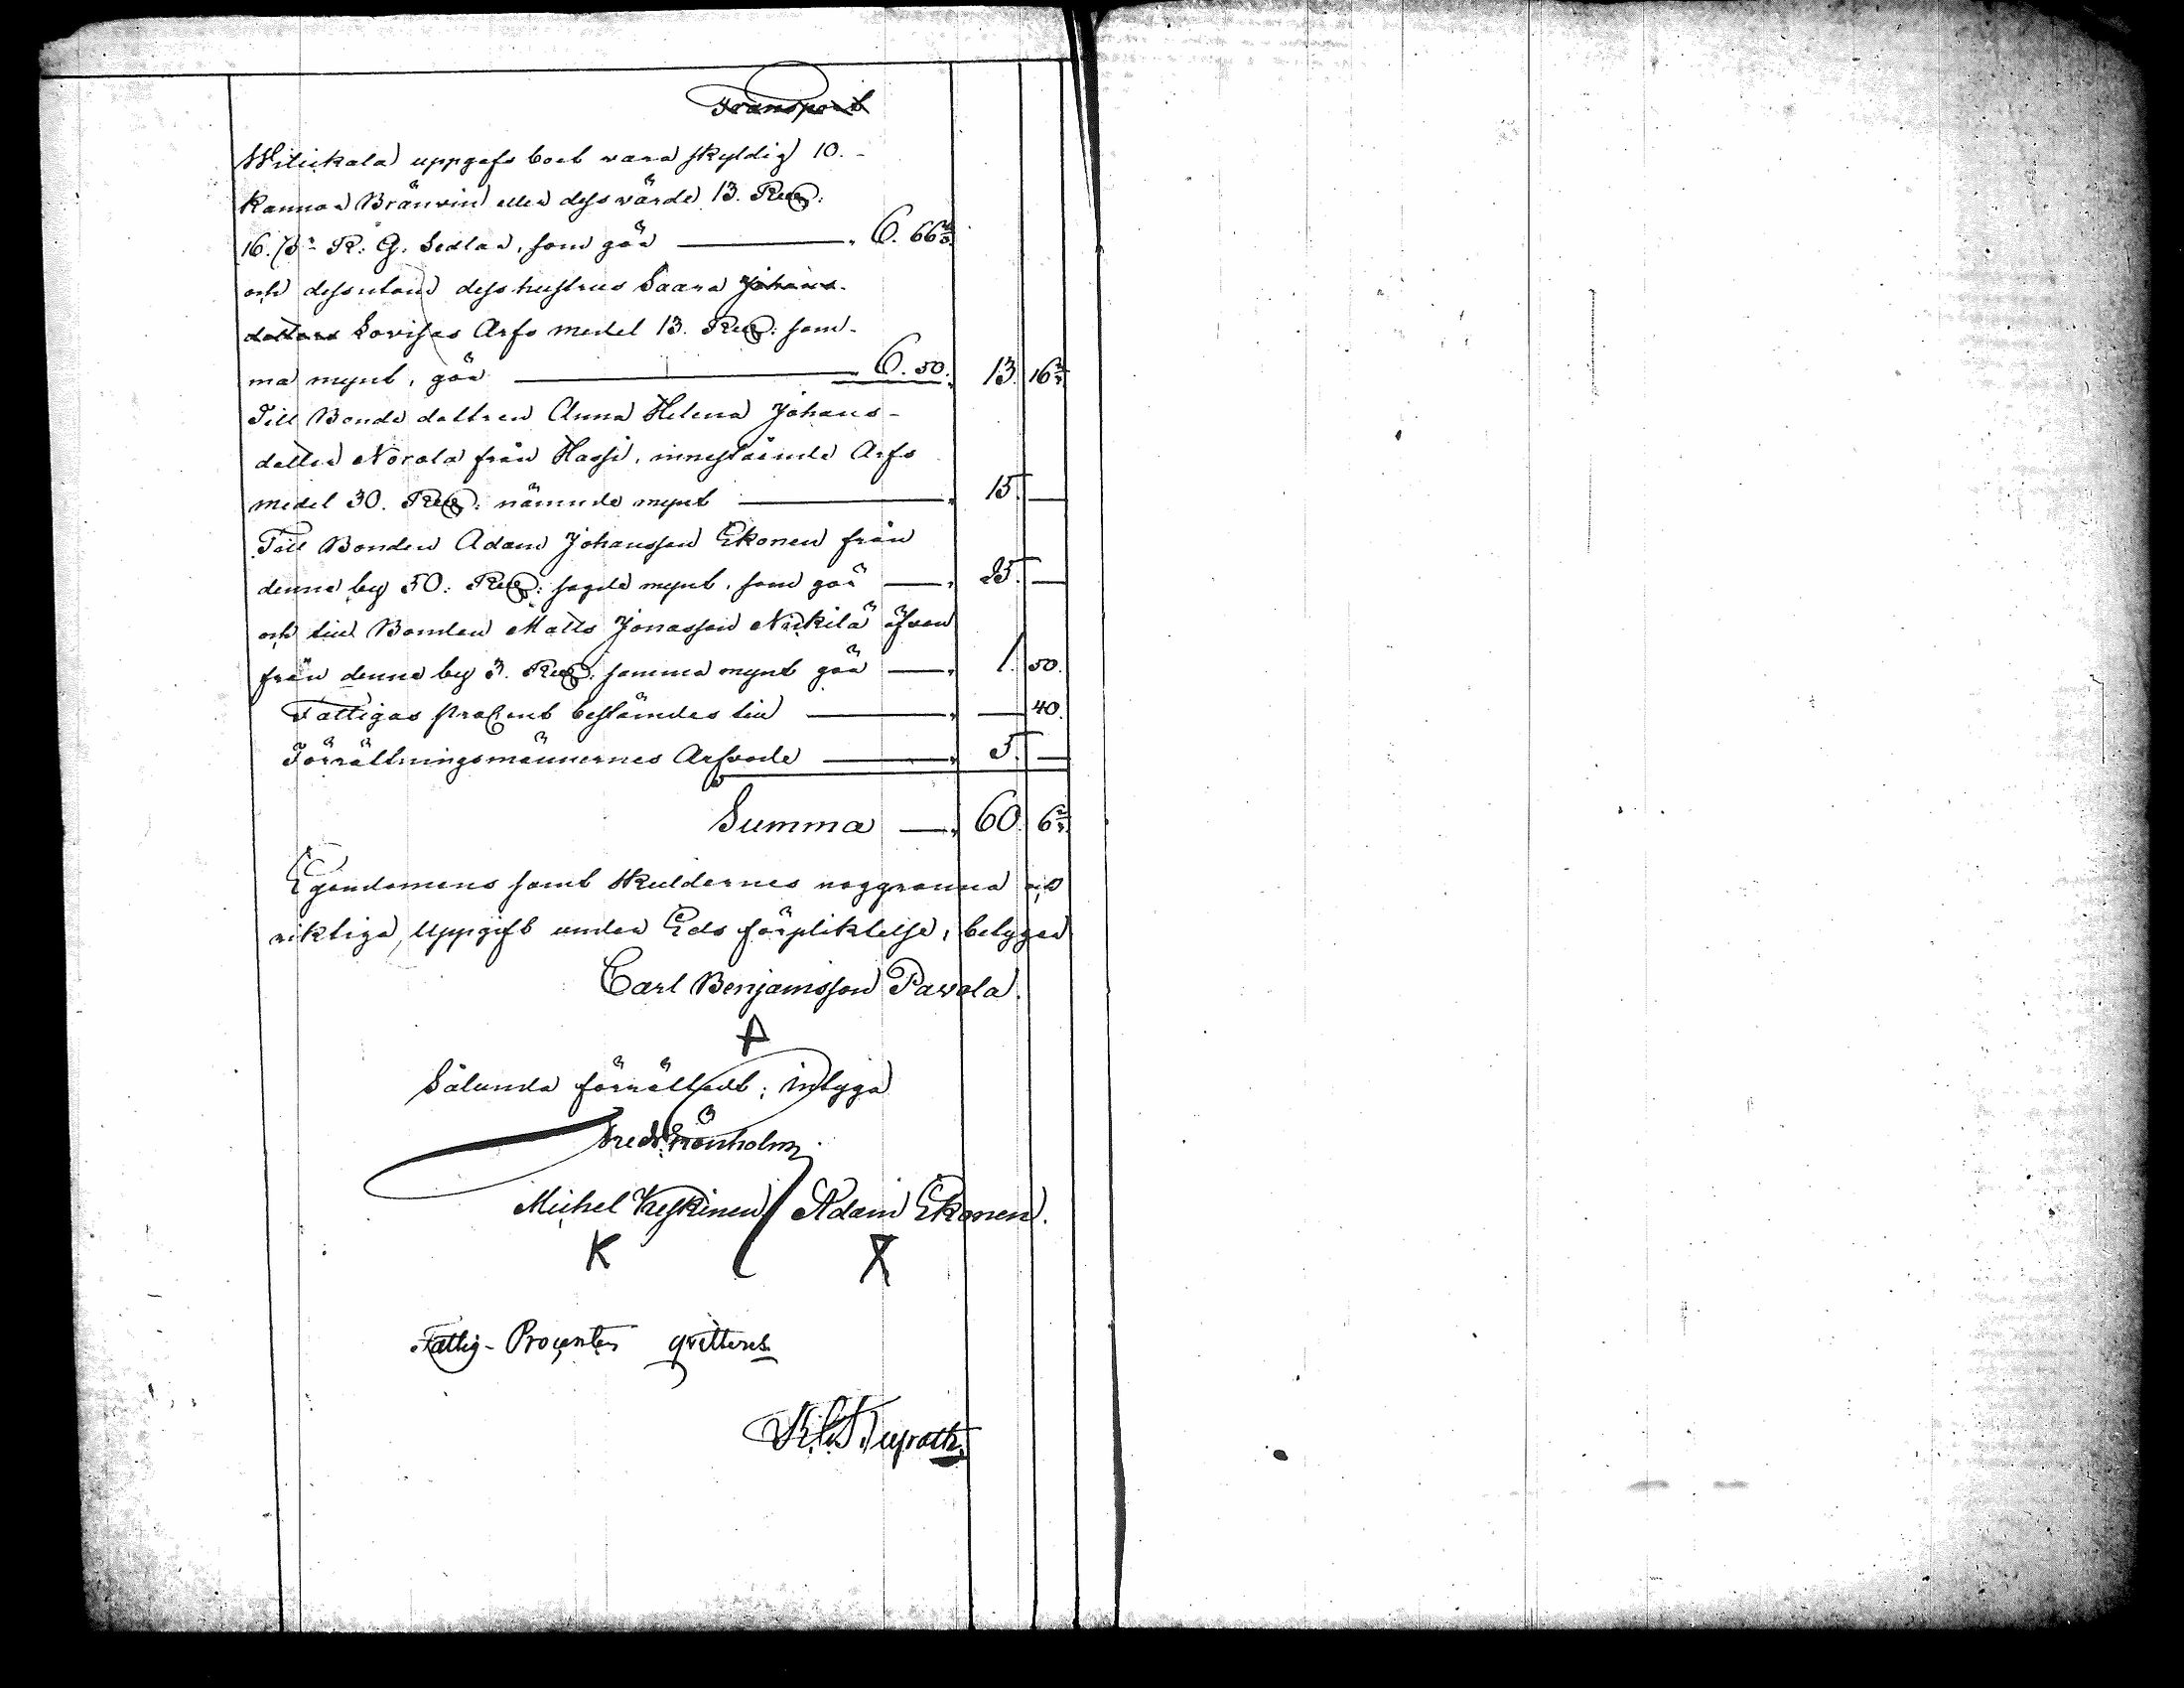 Transport
Witickala uppgafs boet vara skyldig 10.-
kannor Bränvin eller dess värde 13. Rub:
16. sk R. G. Sedlar, som gör — " 6. 66⅔
och dessutom dess hustrus Saara Johans-
dotters Lovisas Arfs medel 13. Rub: sam-
ma mynt, gör — " 6. 50. " 13. 16⅔
Till Bonde dottren Anna Helena Johans-
dotter Norola från Hassi, innestående Arfs
medel 30. Rub: nämnde mynt — " 15. —
Till Bonden Adam Johansson Ekonen från
denne by 50. Rub: sagde mynt, som gör — " 25. —
och till Bonden Matts Jonasson Nickilä äfven
från denne by 3. Rub: samma mynt gör — " 1. 50.
Fattigas procent bestämdes till — " — 40.
Förrättningsmännernes Arfvode — " 5. —
Summa — " 60. 6⅔
Egendomens samt skuldernes noggranna och
riktiga uppgift under Eds förpliktelse, betygar
Carl Benjamsson Pavola.
Sålunda förrättadt; intyga
Fredr. Grönholm.
Michel Keskinen Adam Ekonen.
K
Fattig-Procenten qvitteres